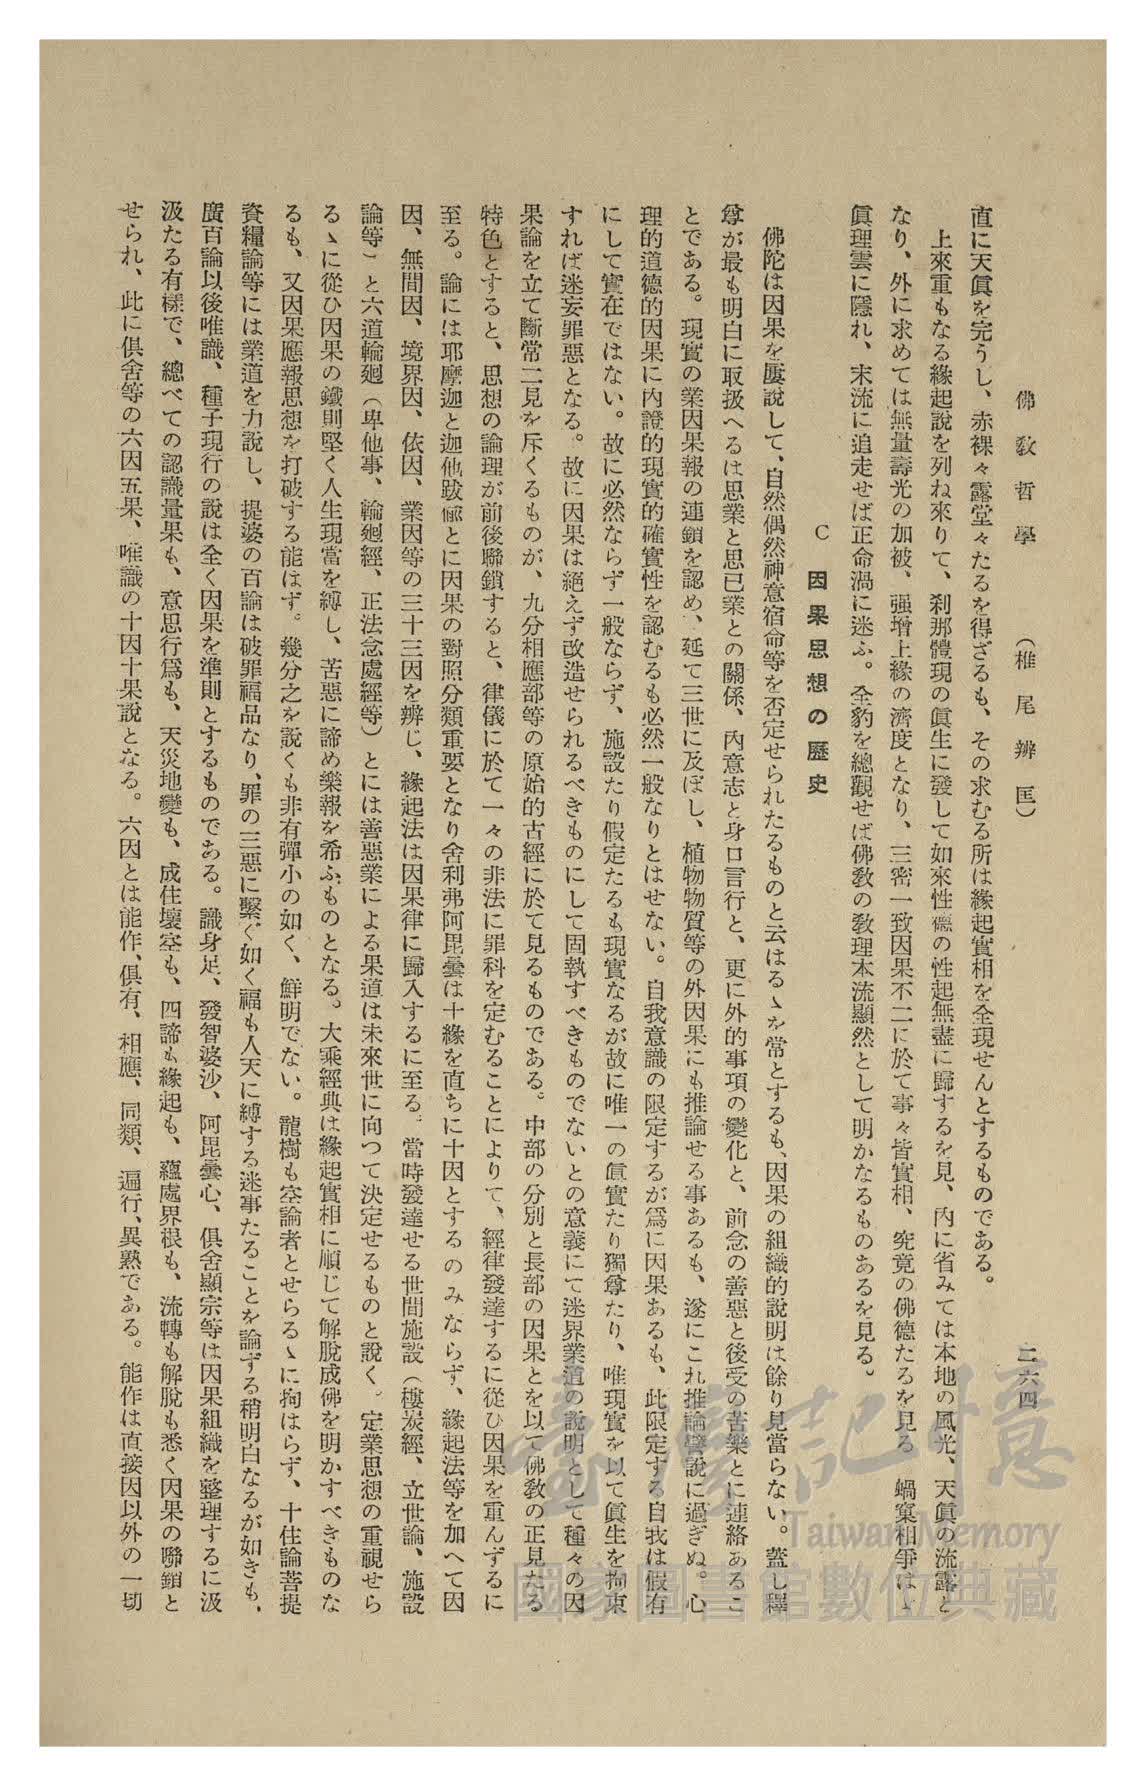 佛教哲學　（椎尾辨匡）　二六四
直に天眞を完うし、赤裸々露堂々たるを得ざるも、その求むる所は緣起實相を全現せんとするものである。
上來重もなる緣起說を列ね來りて、刹那體現の眞生に發して如來性德の性起無盡に歸するを見、內に省みては本地の風光、天眞の流露と
なり、外に求めては無量壽光の加被、强增上緣の濟度となり、三密一致因果不二に於て事々皆實相、究竟の佛德たるを見る　蝸窠相爭はゞ
眞理雲に隱れ、末流に追走せば正命渦に迷ふ。全豹を總觀せば佛敎の敎理本流顯然として明かなるものあるを見る。
C　因果思想の歷史
佛陀は因果を屢說して、自然偶然神意宿命等を否定せられたるものと云はるゝを常とするも、因果の組織的說明は餘り見當らない。蓋し釋
尊が最も明白に取扱へるは思業と思已業との關係、內意志と身口言行と、更に外的事項の變化と、前念の善惡と後受の苦樂とに連絡あるこ
とである。現實の業因果報の連鎖を認め、延て三世に及ぼし、植物物質等の外因果にも推論せる事あるも、遂にこれ推論譬說に過ぎぬ。心
理的道德的因果に內證的現實的確實性を認むるも必然一般なりとはせない。自我意識の限定するが爲に因果あるも、此限定する自我は假有
にして實在ではない。故に必然ならず一般ならず、施設たり假定たるも現實なるが故に唯一の眞實たり獨尊たり、唯現實を以て眞生を拘束
すれば迷妄罪惡となる。故に因果は絕えず改造せられるべきものにして固執すべきものでないとの意義にて迷界業道の說明として種々の因
果論を立て斷常二見を斥くるものが、九分相應部等の原始的古經に於て見るものである。中部の分別と長部の因果とを以て佛敎の正見たる
特色とすると、思想の論理が前後聯鎖すると、律儀に於て一々の非法に罪科を定むることによりて、經律發達するに從ひ因果を重んずるに
至る。論には耶摩迦と迦他跋偭とに因果の對照分類重要となり舍利弗阿毘曇は十緣を直ちに十因とするのみならず、緣起法等を加へて因
因、無間因、境界因、依因、業因等の三十三因を辨じ、緣起法は因果律に歸入するに至る。當時發達せる世間施設（樓炭經、立世論、施設
論等）と六道輪廻（卑他事、輪廻經、正法念處經等）とには善惡業による果道は未來世に向つて決定せるものと說く。定業思想の重視せら
るゝに從ひ因果の鐵則堅く人生現當を縛し、苦惡に諦め樂報を希ふものとなる。大乘經典は緣起實相に順じて解脫成佛を明かすべきものな
るも、又因果應報思想を打破する能はず。幾分之を說くも非有彈小の如く、鮮明でない。龍樹も空論者とせらるゝに拘はらず、十住論菩提
資糧論等には業道を力說し、提婆の百論は破罪福品なり、罪の三惡に繫ぐ如く福も人天に縛する迷事たることを論ずる稍明白なるが如きも、
廣百論以後唯識、種子現行の說は全く因果を準則とするものである。識身足、發智婆沙、阿毘曇心、俱舍顯宗等は因果組織を整理するに汲
汲たる有樣で、總べての認識量果も、意思行爲も、天災地變も、成住壞空も、四諦も緣起も、蘊處界根も、流轉も解脫も悉く因果の聯鎖と
せられ、此に俱舍等の六因五果、唯識の十因十果說となる。六因とは能作、俱有、相應、同類、遍行、異熟である。能作は直接因以外の一切
臺灣記憶
Taiwan Memory
國家圖書館數位典藏